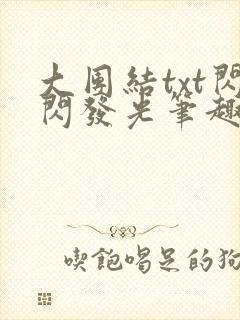 大團結txt閃
閃發光筆趣
喫飽喝足的狗